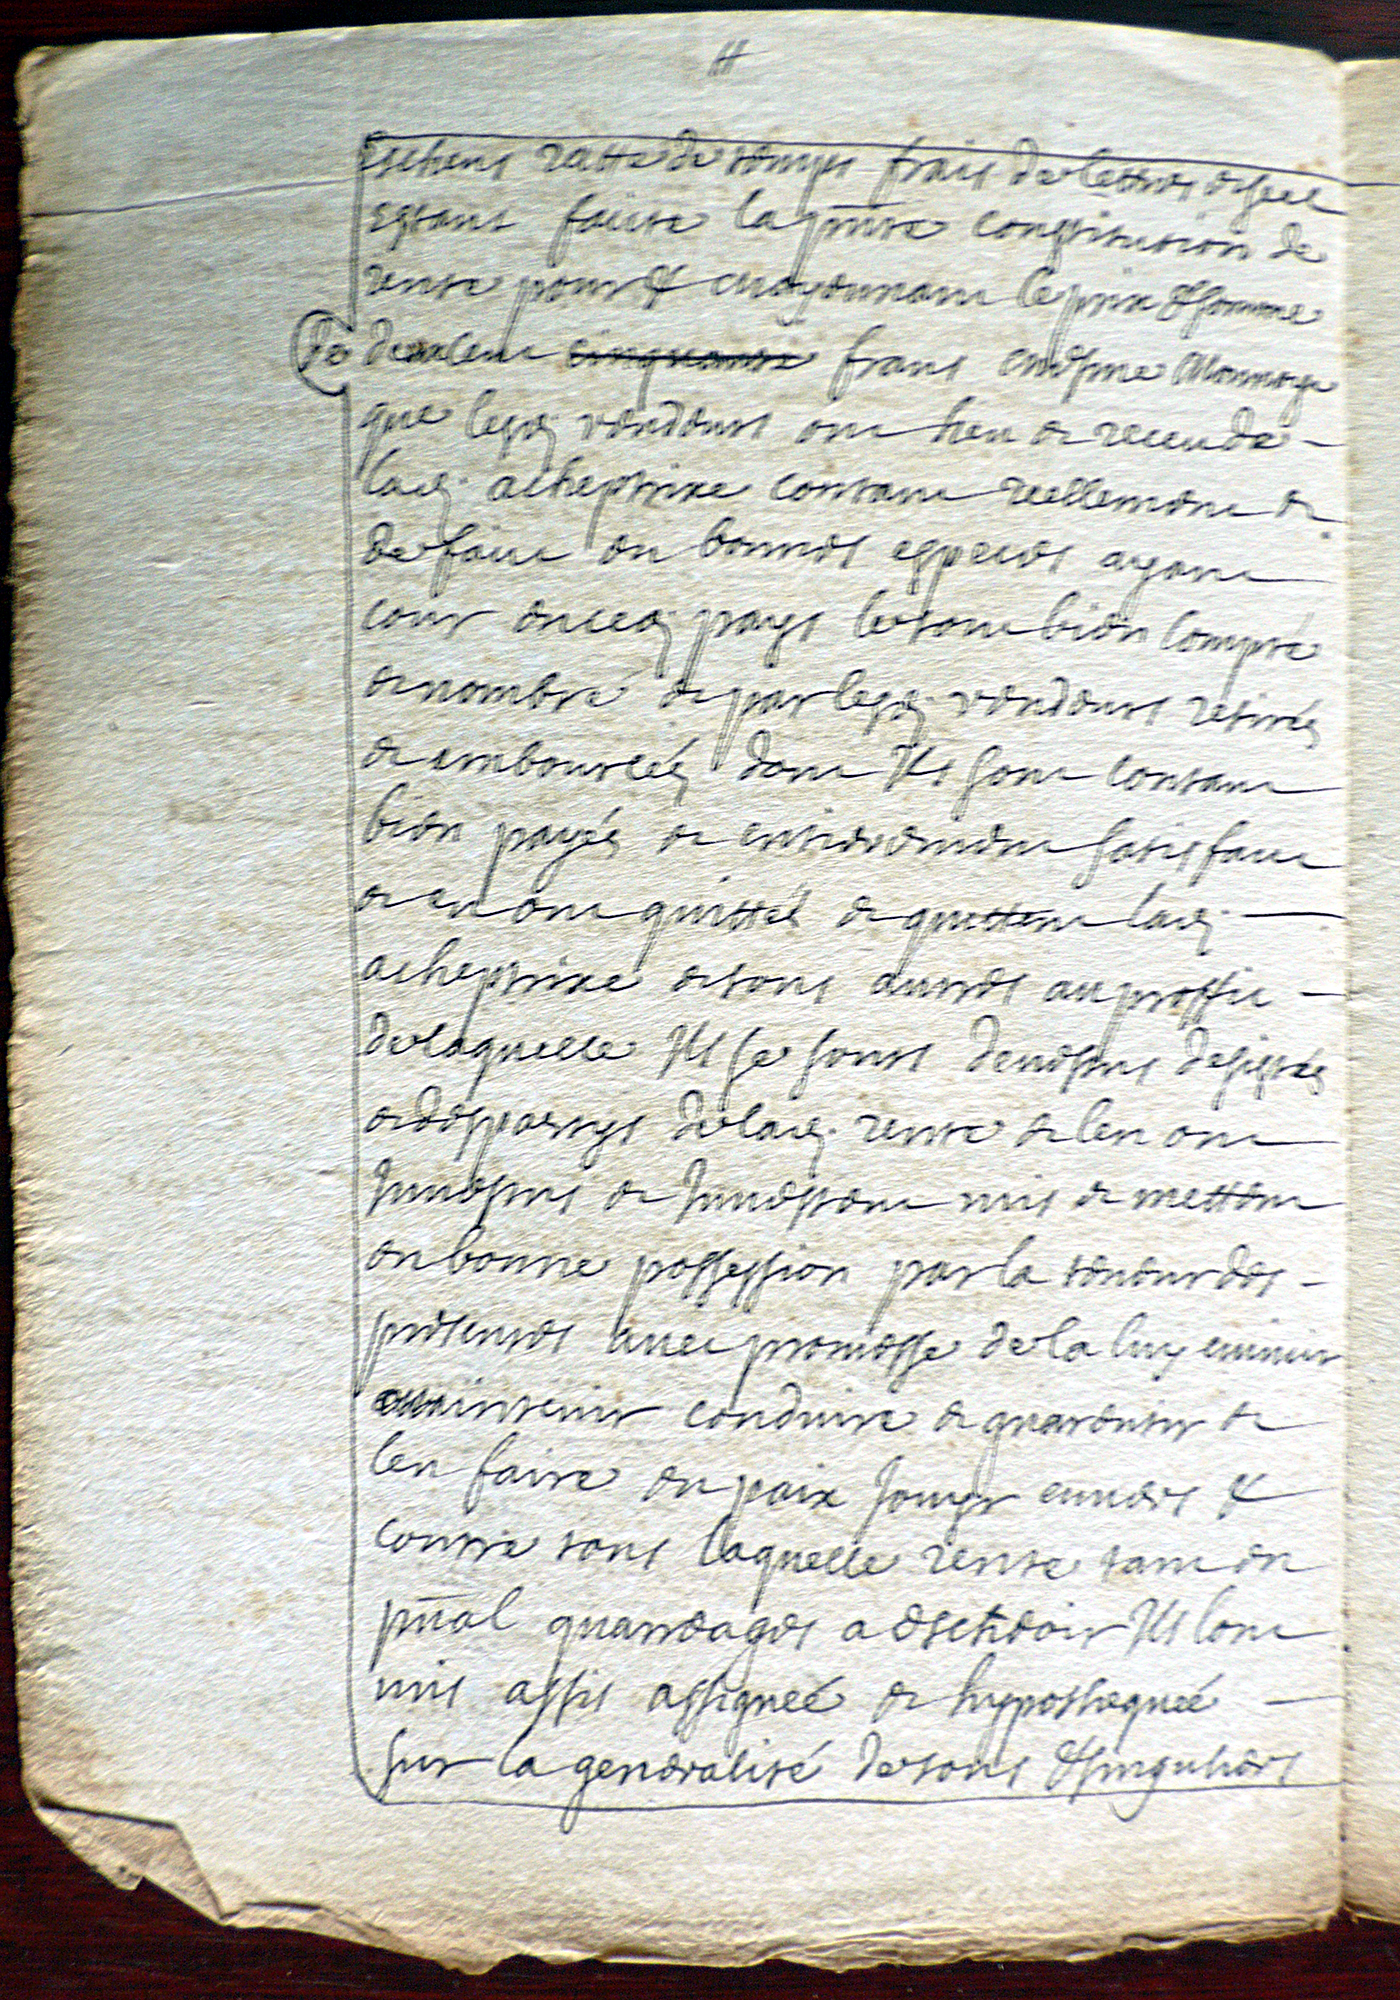 escheus ratte de temps frais de lettres et seel
estant faitte la pnte constitution de
rente pour et moyennant le prix et somme
de de cinquante frans monnoye
que lesd. vendeurs ont heu et receu de -
lad. acheptrixe contant reellement et
de fait en bonnes especes ayant
cour en ced. pays le tout bien compté
et nombré et par lesd. vendeurs retirés
et emboursées dont ils sont content
bien payés et entierement satisfait
et en ont quitté et quittent lad. -
acheptrixe et tous autres au proffit -
de laquelle ils se sont devestus desistés
et despartys de lad. rente et len ont
Jnvestus et Jnvestent mis et mettent
en bonne possession par la teneur des -
presentes avec promesse de la luy
maintenir conduire et guarentir et
len faire en paix Jouyr envers et
contre tous laquelle rente tant en
pnal quarrerages a escheoir ils lont
mis assis assignée et hypothequée -
sur la generalité de tous et singuliers